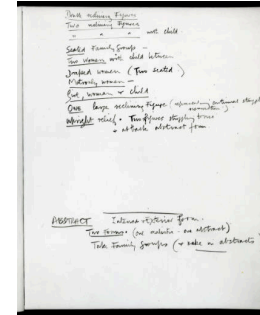 Two reclining Figures
" " " with child
Seated Family Groups -
Two women with child between
Draped women (Two seated)
Maternity women -
woman & child
ONE large reclining figure (
upright relief. Two figures struggling
abstract form
ABSTRACT Internal & External Form.
Two Forms. (one realistic - one abstract)
Take Family groups (& make abstracts